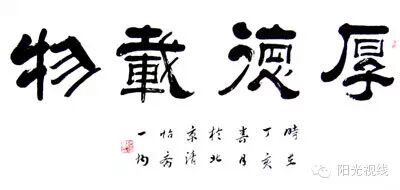 厚德載物
時在
丁亥
春月
於北
京清
怡斋
阳光视线